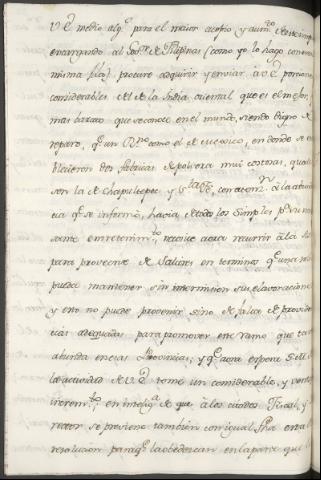 V.E. medio alg.º para el maior acopio y aum.to de este ramo
encargando al Gov.or de Filipinas (como yo lo hago con esta
misma fha) procure adquirir y enviar à V.E. porciones
considerables del de la India oriental que es el mejor, y
mas barato que se conoce en el mundo, siendo digno de
reparo, q.e un Rno como el de Mexico, en donde se esta
blecieron dos fabricas de polvora mui costosas, quales
son la de Chapultepec y S.ta Fé, con atenz.n à la abundan
cia q.e se informó, havia de todos los simples p.a su in
sante entretenim.to, necesite aora recurrir à la
para proveerse de Salitre en terminos q.e una
pueda mantener sin intermision sus elavoraciones
y esto no puede provenir sino de falta de providen
cias adequadas para promover este ramo que tanto
abunda en esas Provincias; y q.e aora espera S.M.
la actividad de V.E. tome un considerable, y
increm.to; en intelig.a de que à los citados
rector se previene tambien con igual fha esta
resolucion para q.e la obedezcan en la parte que